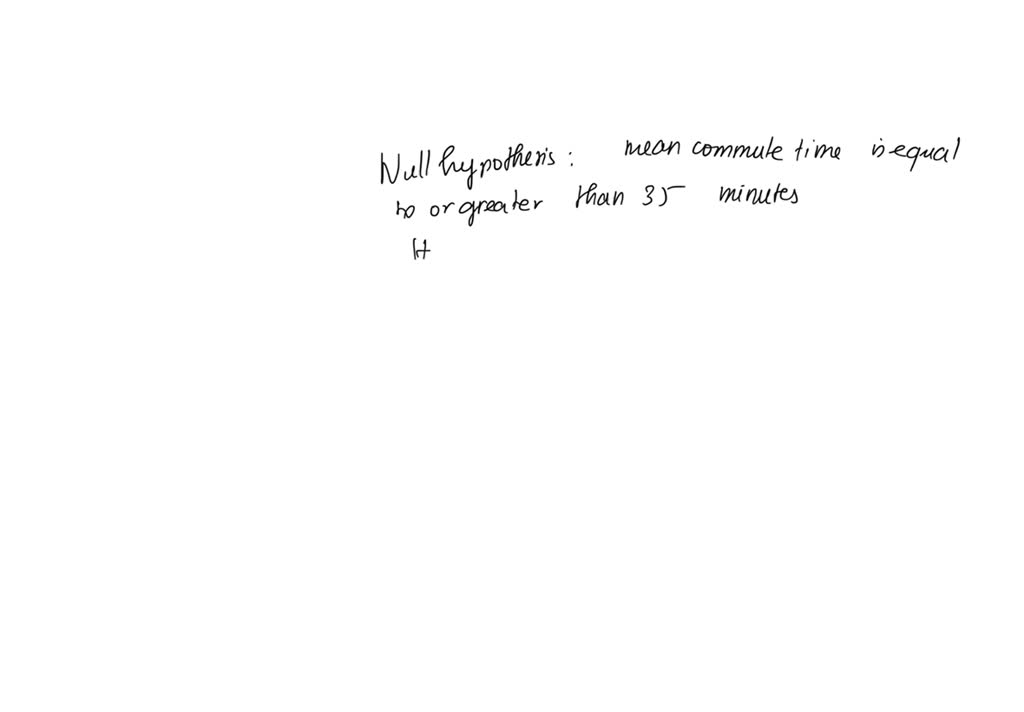 Null hypothesis: mean commute time is equal
to or greater than 35 minutes
H